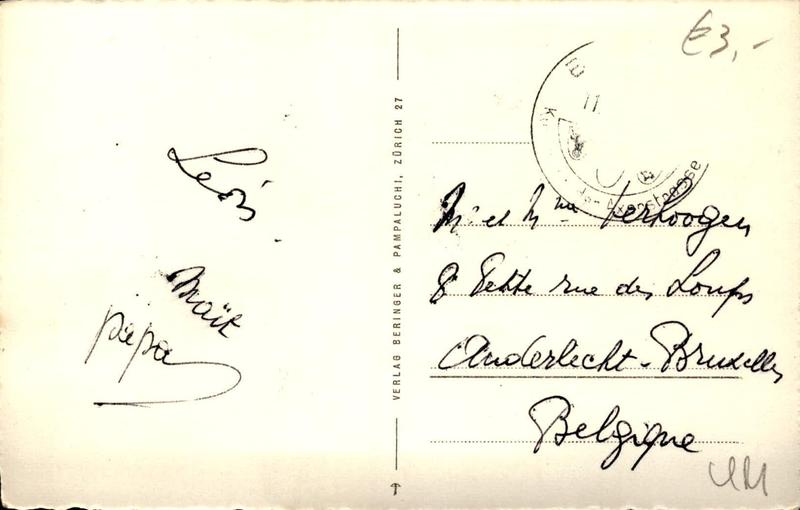 €3,-
Léon
Maït
papa
VERLAG BERINGER & PAMPALUCHI, ZÜRICH 27
11.
Axenstrasse
Mr et Mme Verhoogen
8 Petite rue des Loups
Anderlecht-Bruxelles
Belgique